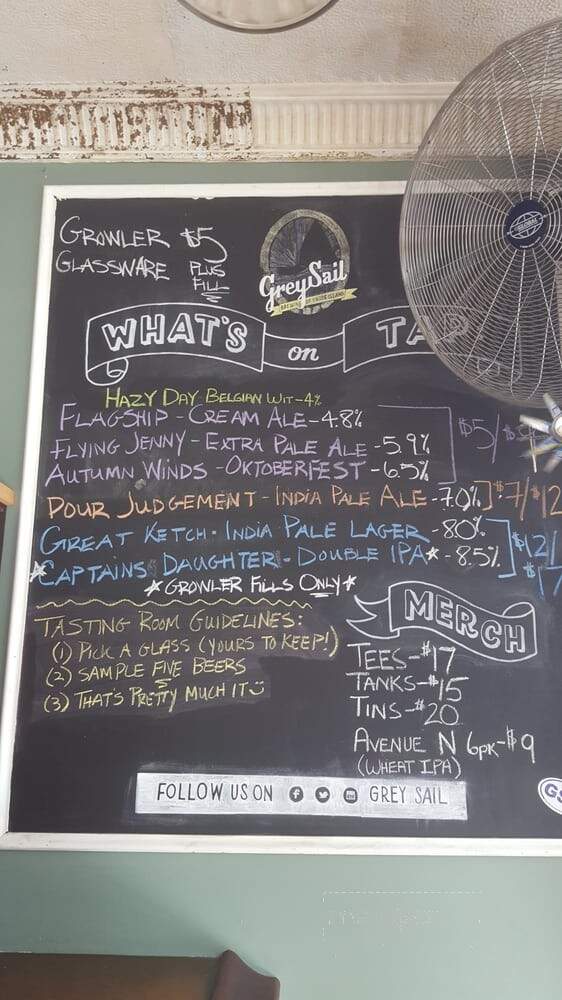 GROWLER $5
GLASSWARE PLUS
FILL
GreySail
BREWING OF RHODE ISLAND
WHAT'S on TAP
HAZY DAY-BELGIAN WIT-4%
FLAGSHIP-CREAM ALE-4.8%
FLYING JENNY-EXTRA PALE ALE-5.9%
AUTUMN WINDS-OKTOBERFEST-6.5%
$5/$
POUR JUDGEMENT-INDIA PALE ALE-7.0% $7/$12
GREAT KETCH-INDIA PALE LAGER-8.0%
CAPTAINS DAUGHTER-DOUBLE IPA*-8.5%
$12/
*GROWLER FILLS ONLY*
TASTING ROOM GUIDELINES:
(1) PICK A GLASS (YOURS TO KEEP!)
(2) SAMPLE FIVE BEERS
(3) THAT'S PRETTY MUCH IT
MERCH
TEES-$17
TANKS-$15
TINS-$20
AVENUE N 6PK-$9
(WHEAT IPA)
FOLLOW US ON GREY SAIL
GLOBAL